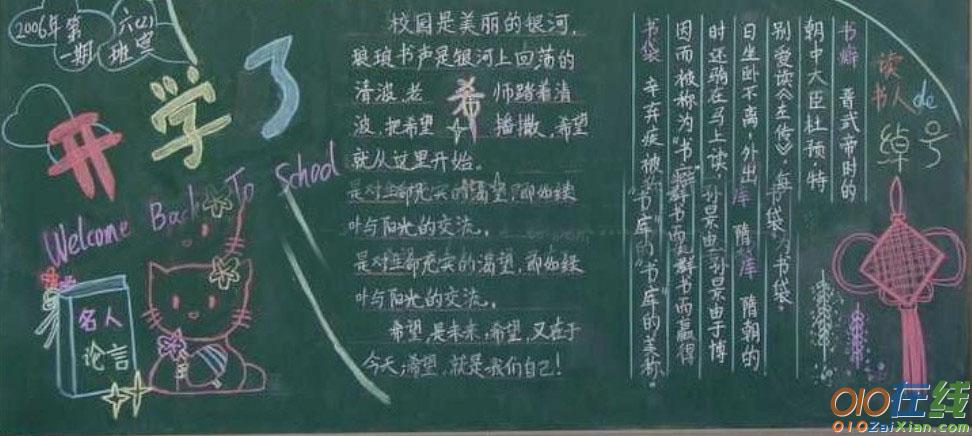 2006年第
一期
六(2)
班宣
开学了
Welcome Back To School
名人
论言
校园是美丽的银河,
琅琅书声是银河上回荡的
清波,老 师踏着清
波,把希望 播撒,希望
就从这里开始。
希
是对生命充实的渴望,即如绿
叶与阳光的交流。
是对生命充实的渴望,即如绿
叶与阳光的交流。
希望,是未来,希望,又在于
今天,希望,就是我们自己!
读书人de绰号
书癖 晋武帝时的
朝中大臣杜预,特
别爱读《左传》,每
日坐卧不离,外出
时还驮在马上读,
因而被称为“书
书袋 辛弃疾被
书袋
库 隋朝的
孙景由于博
群书而赢得
“书库”的美称。
010在线
010ZaiXian.com